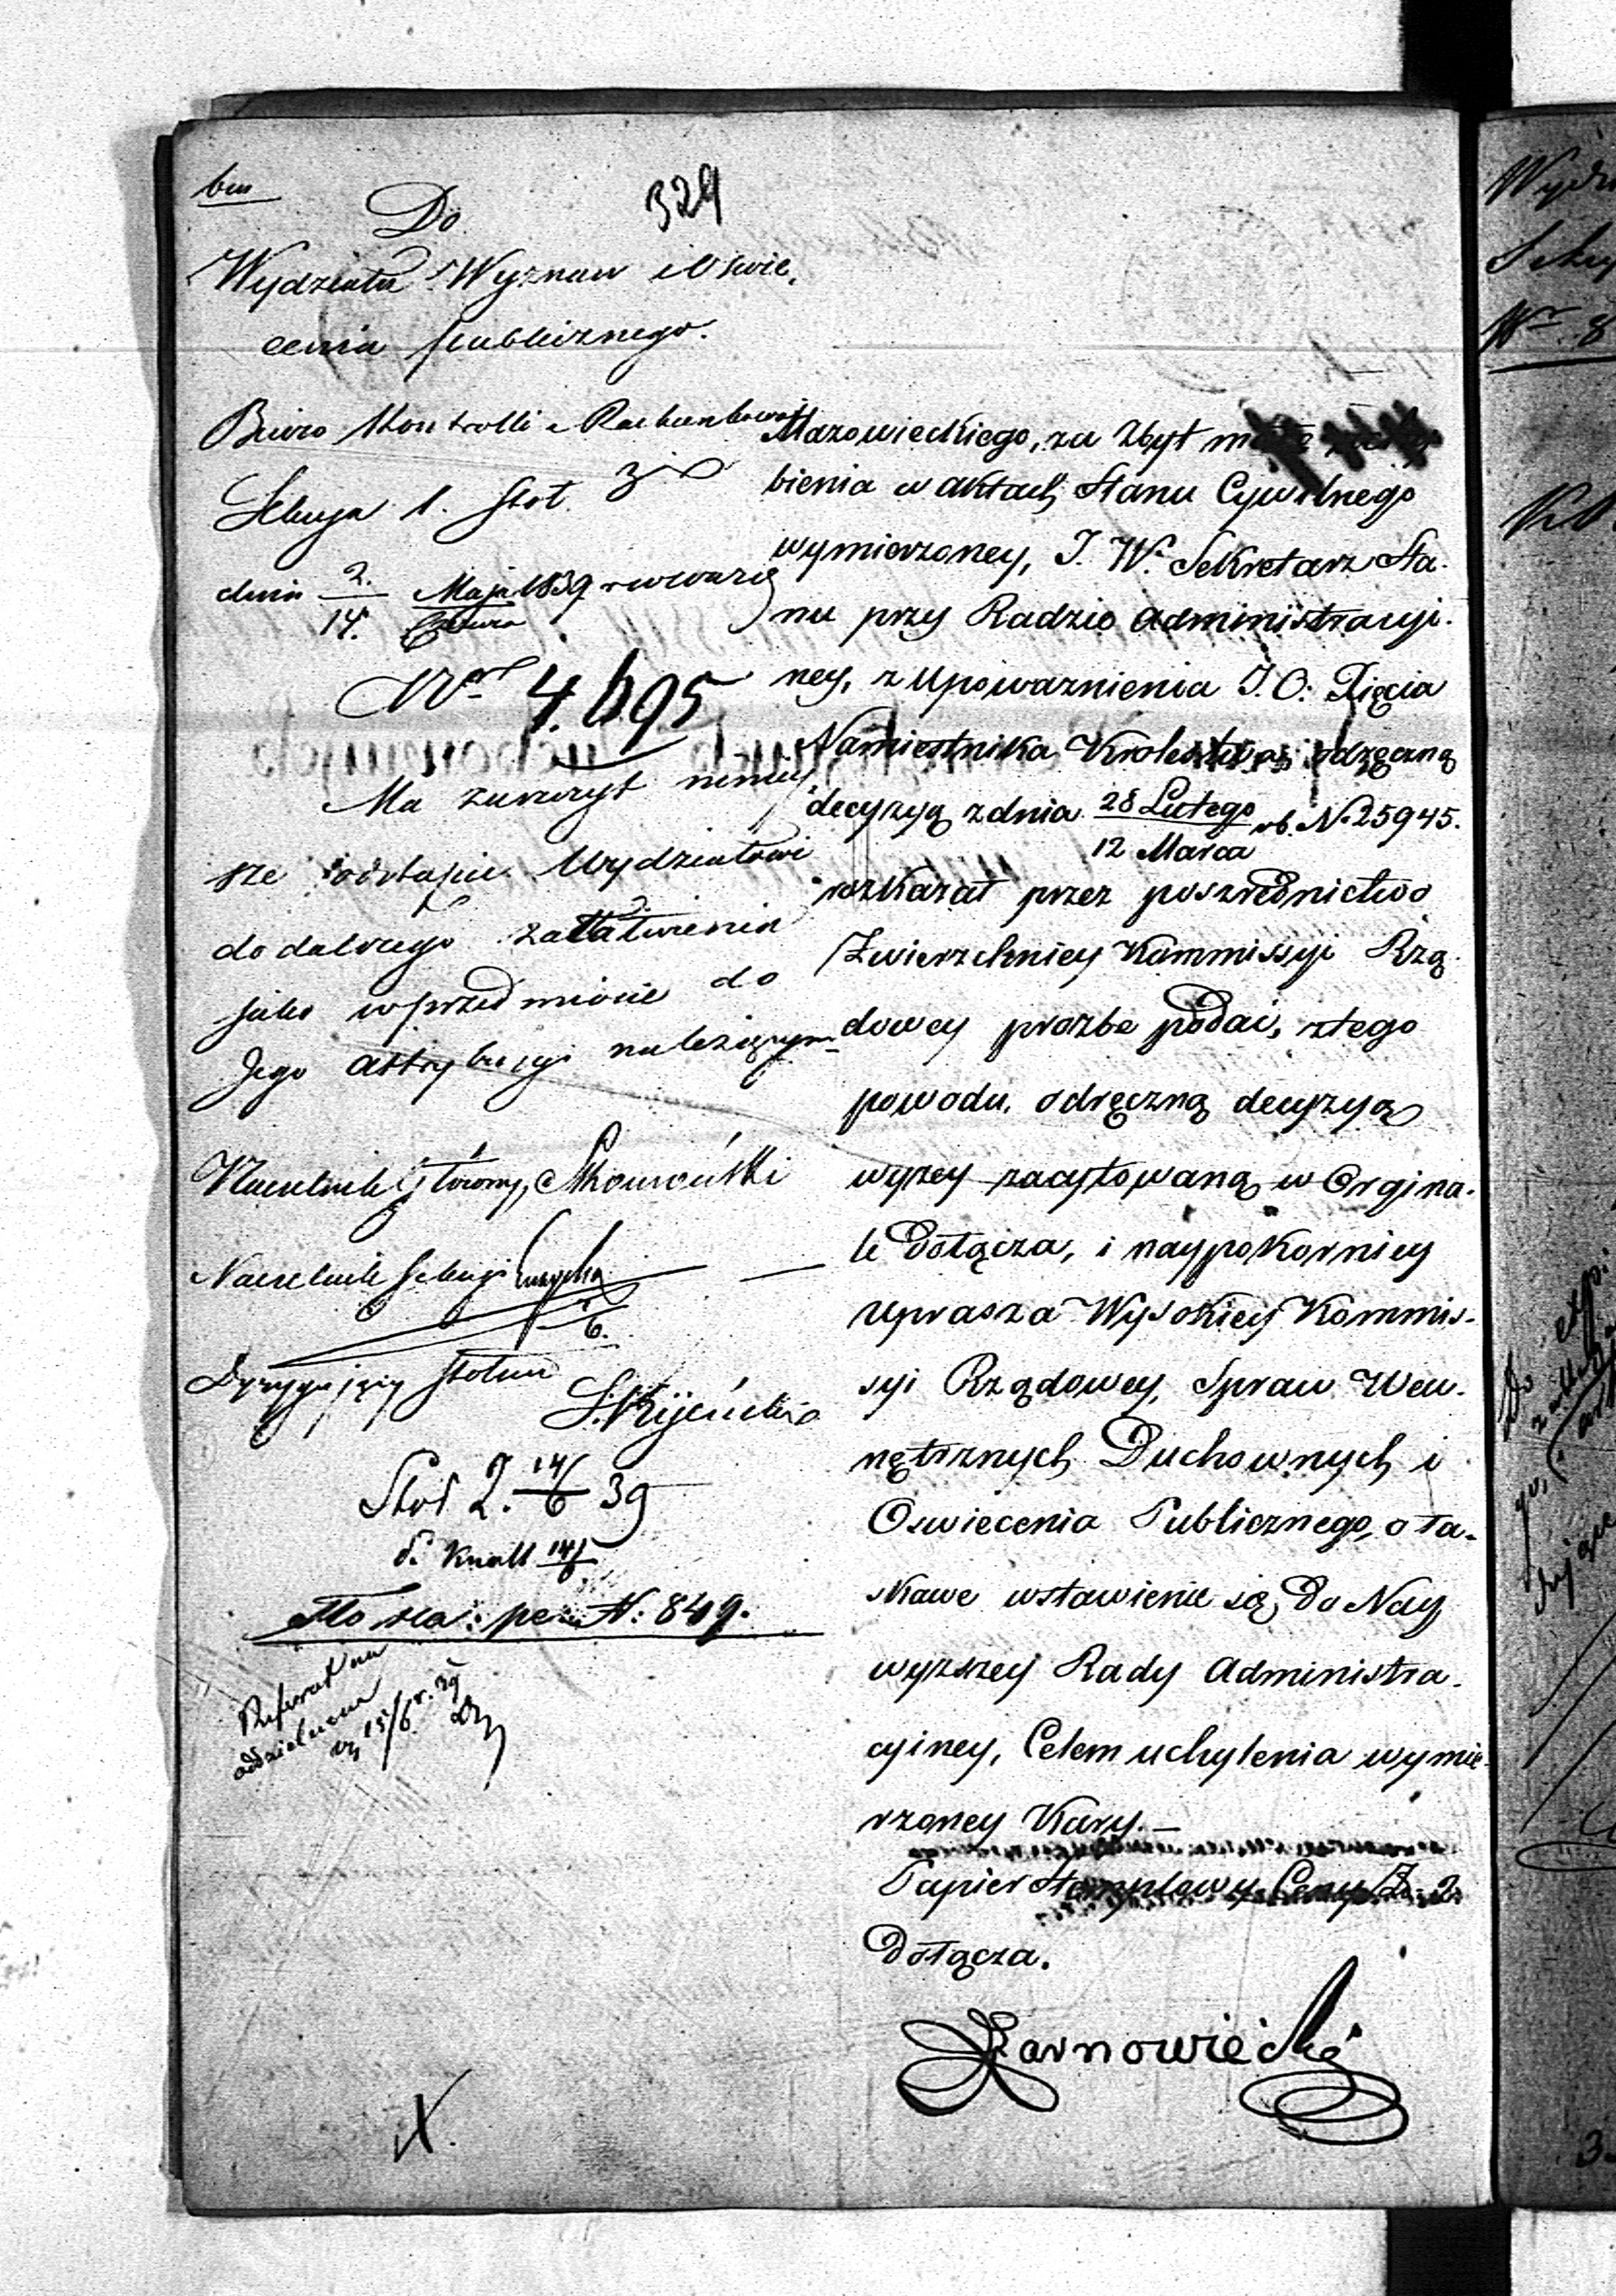 bm
329
Do
Wydziału Wyznań i Oświe.
cenia publicznego.
Biuro Kontrolli i Rachunkowości
Sekcya 1. Stół
dnia 2/14 Maja 1839
Nr 4.695
Ma zaszczyt niniey
sze odstąpić Wydziałowi
do dalszego załatwienia
jako w przedmiocie do
Jego attrybucyi należącym
Naczelnik
Naczelnik Sekcyi
Dyrygujący Stołem
Stół 2. 14/6 39
d. Knoll 14/6
N: 849.
Referat na
oddzielnem
15/6 r. 39
Mazowieckiego, za zbyt
bienia w aktach Stanu Cywilnego
wymierzoney, J. W. Sekretarz Sta-
nu przy Radzie Administracyi-
ney, z upoważnienia J. O. Xięcia
Namiestnika Krolestwa odręczną
decyzyą z dnia 28 Lutego/12 Marca rb. N. 25945.
rozkazał przez pośrednictwo
Zwierzchniey Kommissyi Rzą-
dowey prozbe podać, z tego
powodu, odręczną decyzyą
wyzey zacytowaną w Orgina-
le dołącza, i naypokorniey
uprasza Wysokiey Kommis-
syi Rządowey, Spraw Wew-
nętrznych Duchownych i
Oswiecenia Publicznego, o ła-
skawe wstawienie się do Nay
wyzszey Rady Administra-
cyiney, Celem uchylenia wymie-
rzoney Kary. —
Papier Stemplowy Ceny Zł. 2.
dołącza.
Żarnowiecki
X.